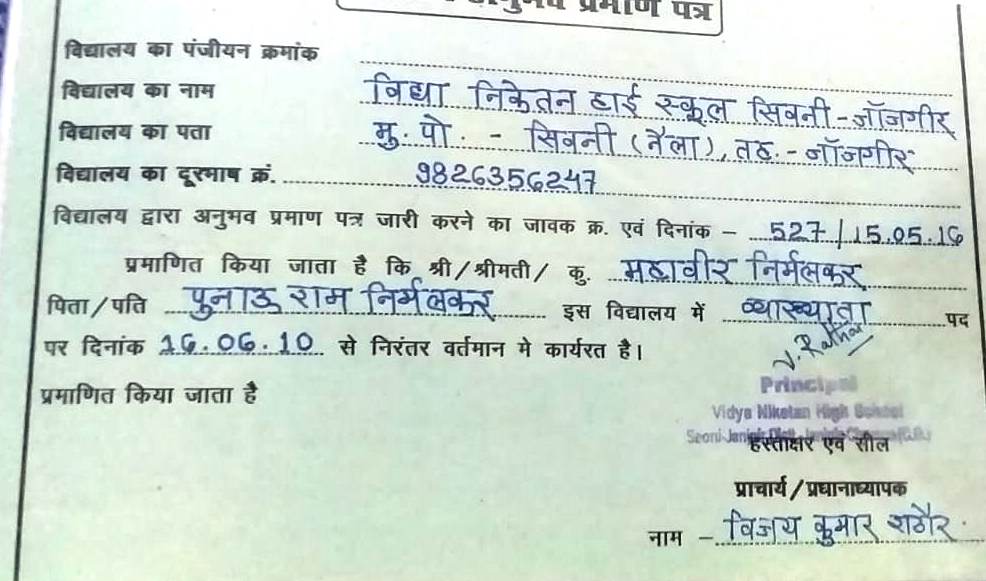 अनुभव प्रमाण पत्र
विद्यालय का पंजीयन क्रमांक
विद्यालय का नाम विद्या निकेतन हाई स्कूल सिवनी-जॉजगीर
विद्यालय का पता मु. पो. - सिवनी (नैला), तह. - जॉजगीर
विद्यालय का दूरभाष क्रं. 9826356247
विद्यालय द्वारा अनुभव प्रमाण पत्र जारी करने का जावक क्र. एवं दिनांक - 527/15.05.16
प्रमाणित किया जाता है कि श्री/श्रीमती/ कु. महावीर निर्मलकर
पिता/पति पुनाऊ राम निर्मलकर इस विद्यालय में व्याख्याता पद
पर दिनांक 16.06.10 से निरंतर वर्तमान मे कार्यरत है।
V. Rathor
प्रमाणित किया जाता है
Principal
Vidya Niketan High School
Seoni-Janjgir
हस्ताक्षर एवं सील
प्राचार्य/प्रधानाध्यापक
नाम - विजय कुमार राठौर